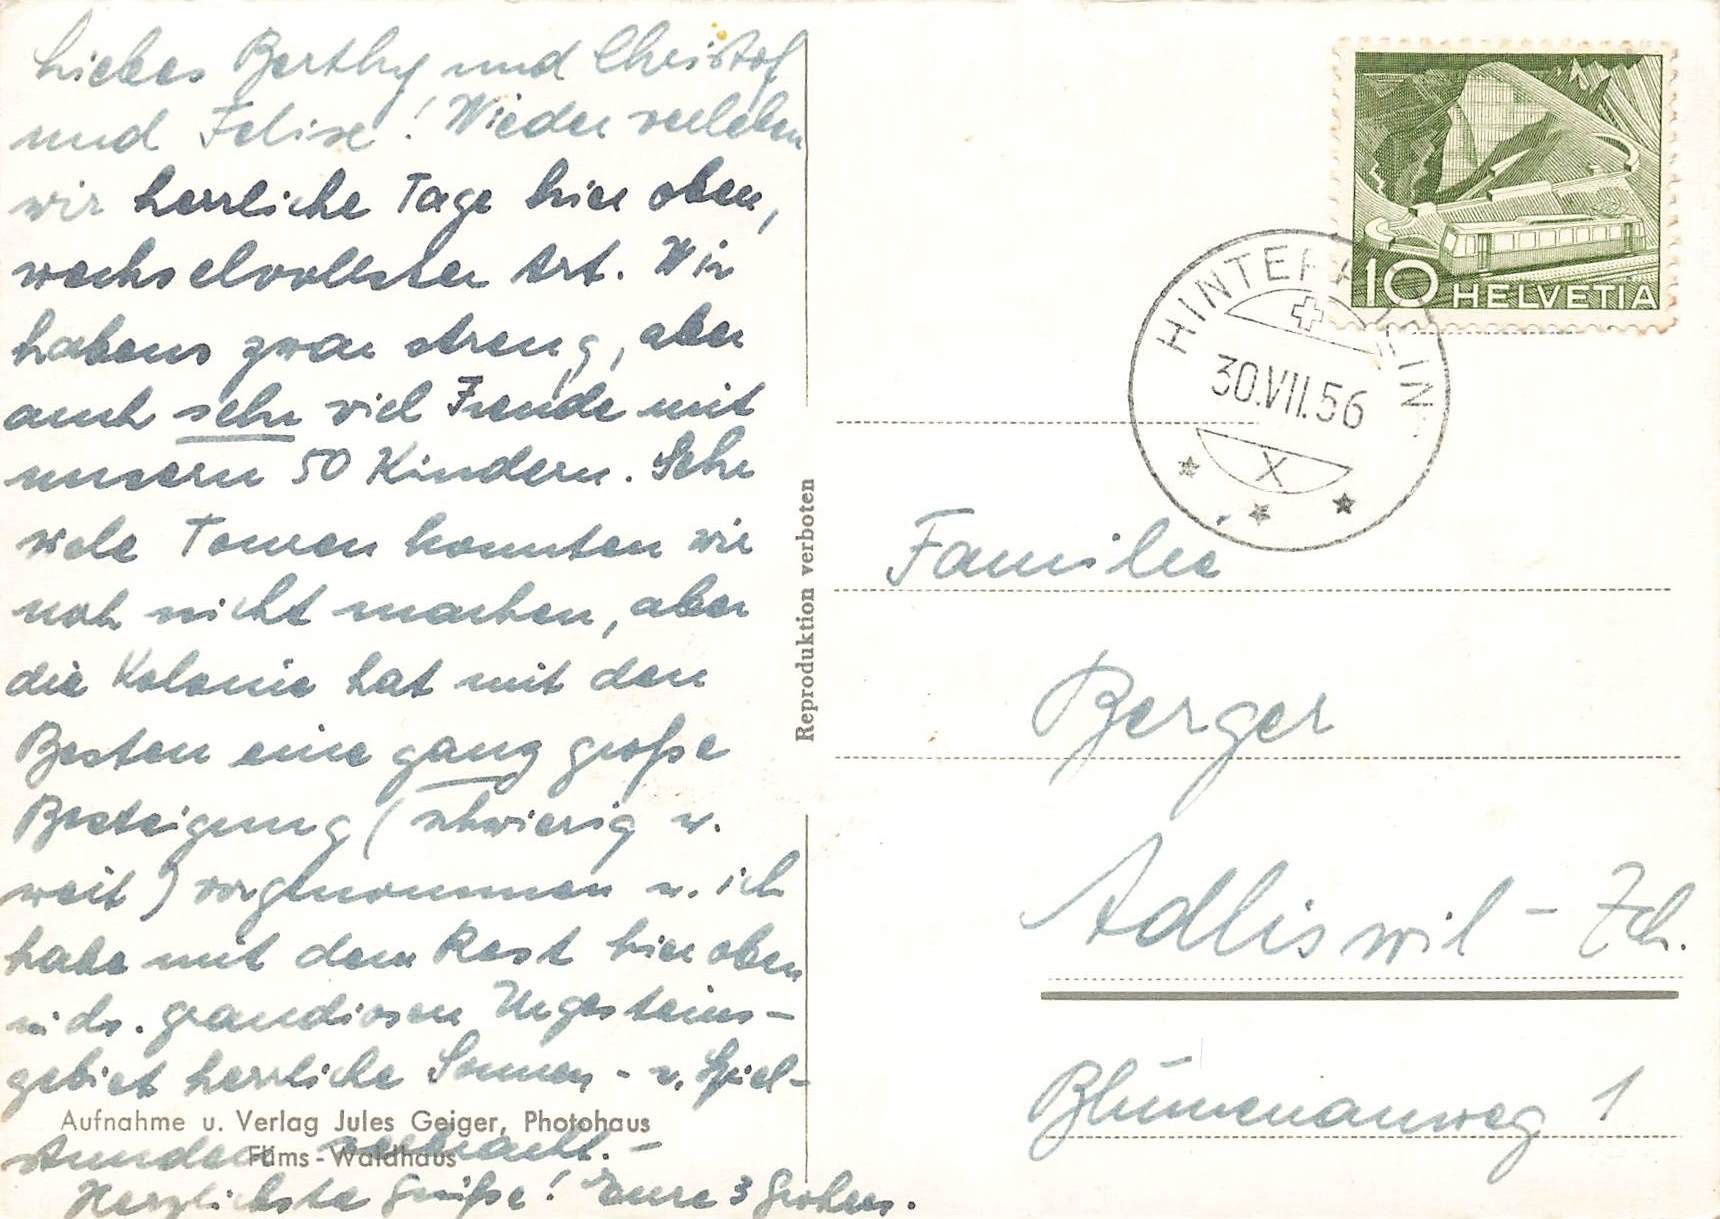 Liebes Berthy und Christof
und Felise! Wieder verleben
wir herrliche Tage hier oben,
wechselvollster Art. Wir
habens zwar streng, aber
auch sehr viel Freude mit
unsern 50 Kindern. Sehr
viele Touren konnten wir
noch nicht machen, aber
die Kolonie hat mit den
Besten eine ganz große
Besteigung (schwierig u.
weit) vorgenommen u. ich
habe mit dem Rest hier oben
in ds. grandiosen Urgesteins-
gebiet herrliche Sonnen- u. Spiel-
stunden verbracht.-
Herzlichste Grüße! Eure 3
Aufnahme u. Verlag Jules Geiger, Photohaus
Flims-Waldhaus
Reproduktion verboten
10 HELVETIA
HINTERRHEIN
30.VII.56
X
Familie
Berger
Adliswil - Zch.
Blümenauweg 1